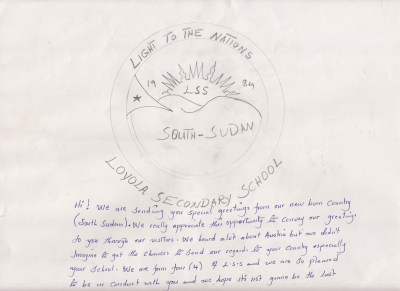 LIGHT TO THE NATIONS
19 84
LSS
SOUTH-SUDAN
LOYOLA SECONDARY SCHOOL
Hi! We are sending you special greetings from our new born County
(South Sudan). We really appreciate this opportunity to convey our greetings
to you through our visitors. We heard alot about Austria but we didn't
Imagine to get the chances to send our regards to your County especially
your School. We are form four (4) of L.S.S and we are so pleased
to be in conduct with you and we hope its not gonna be the last